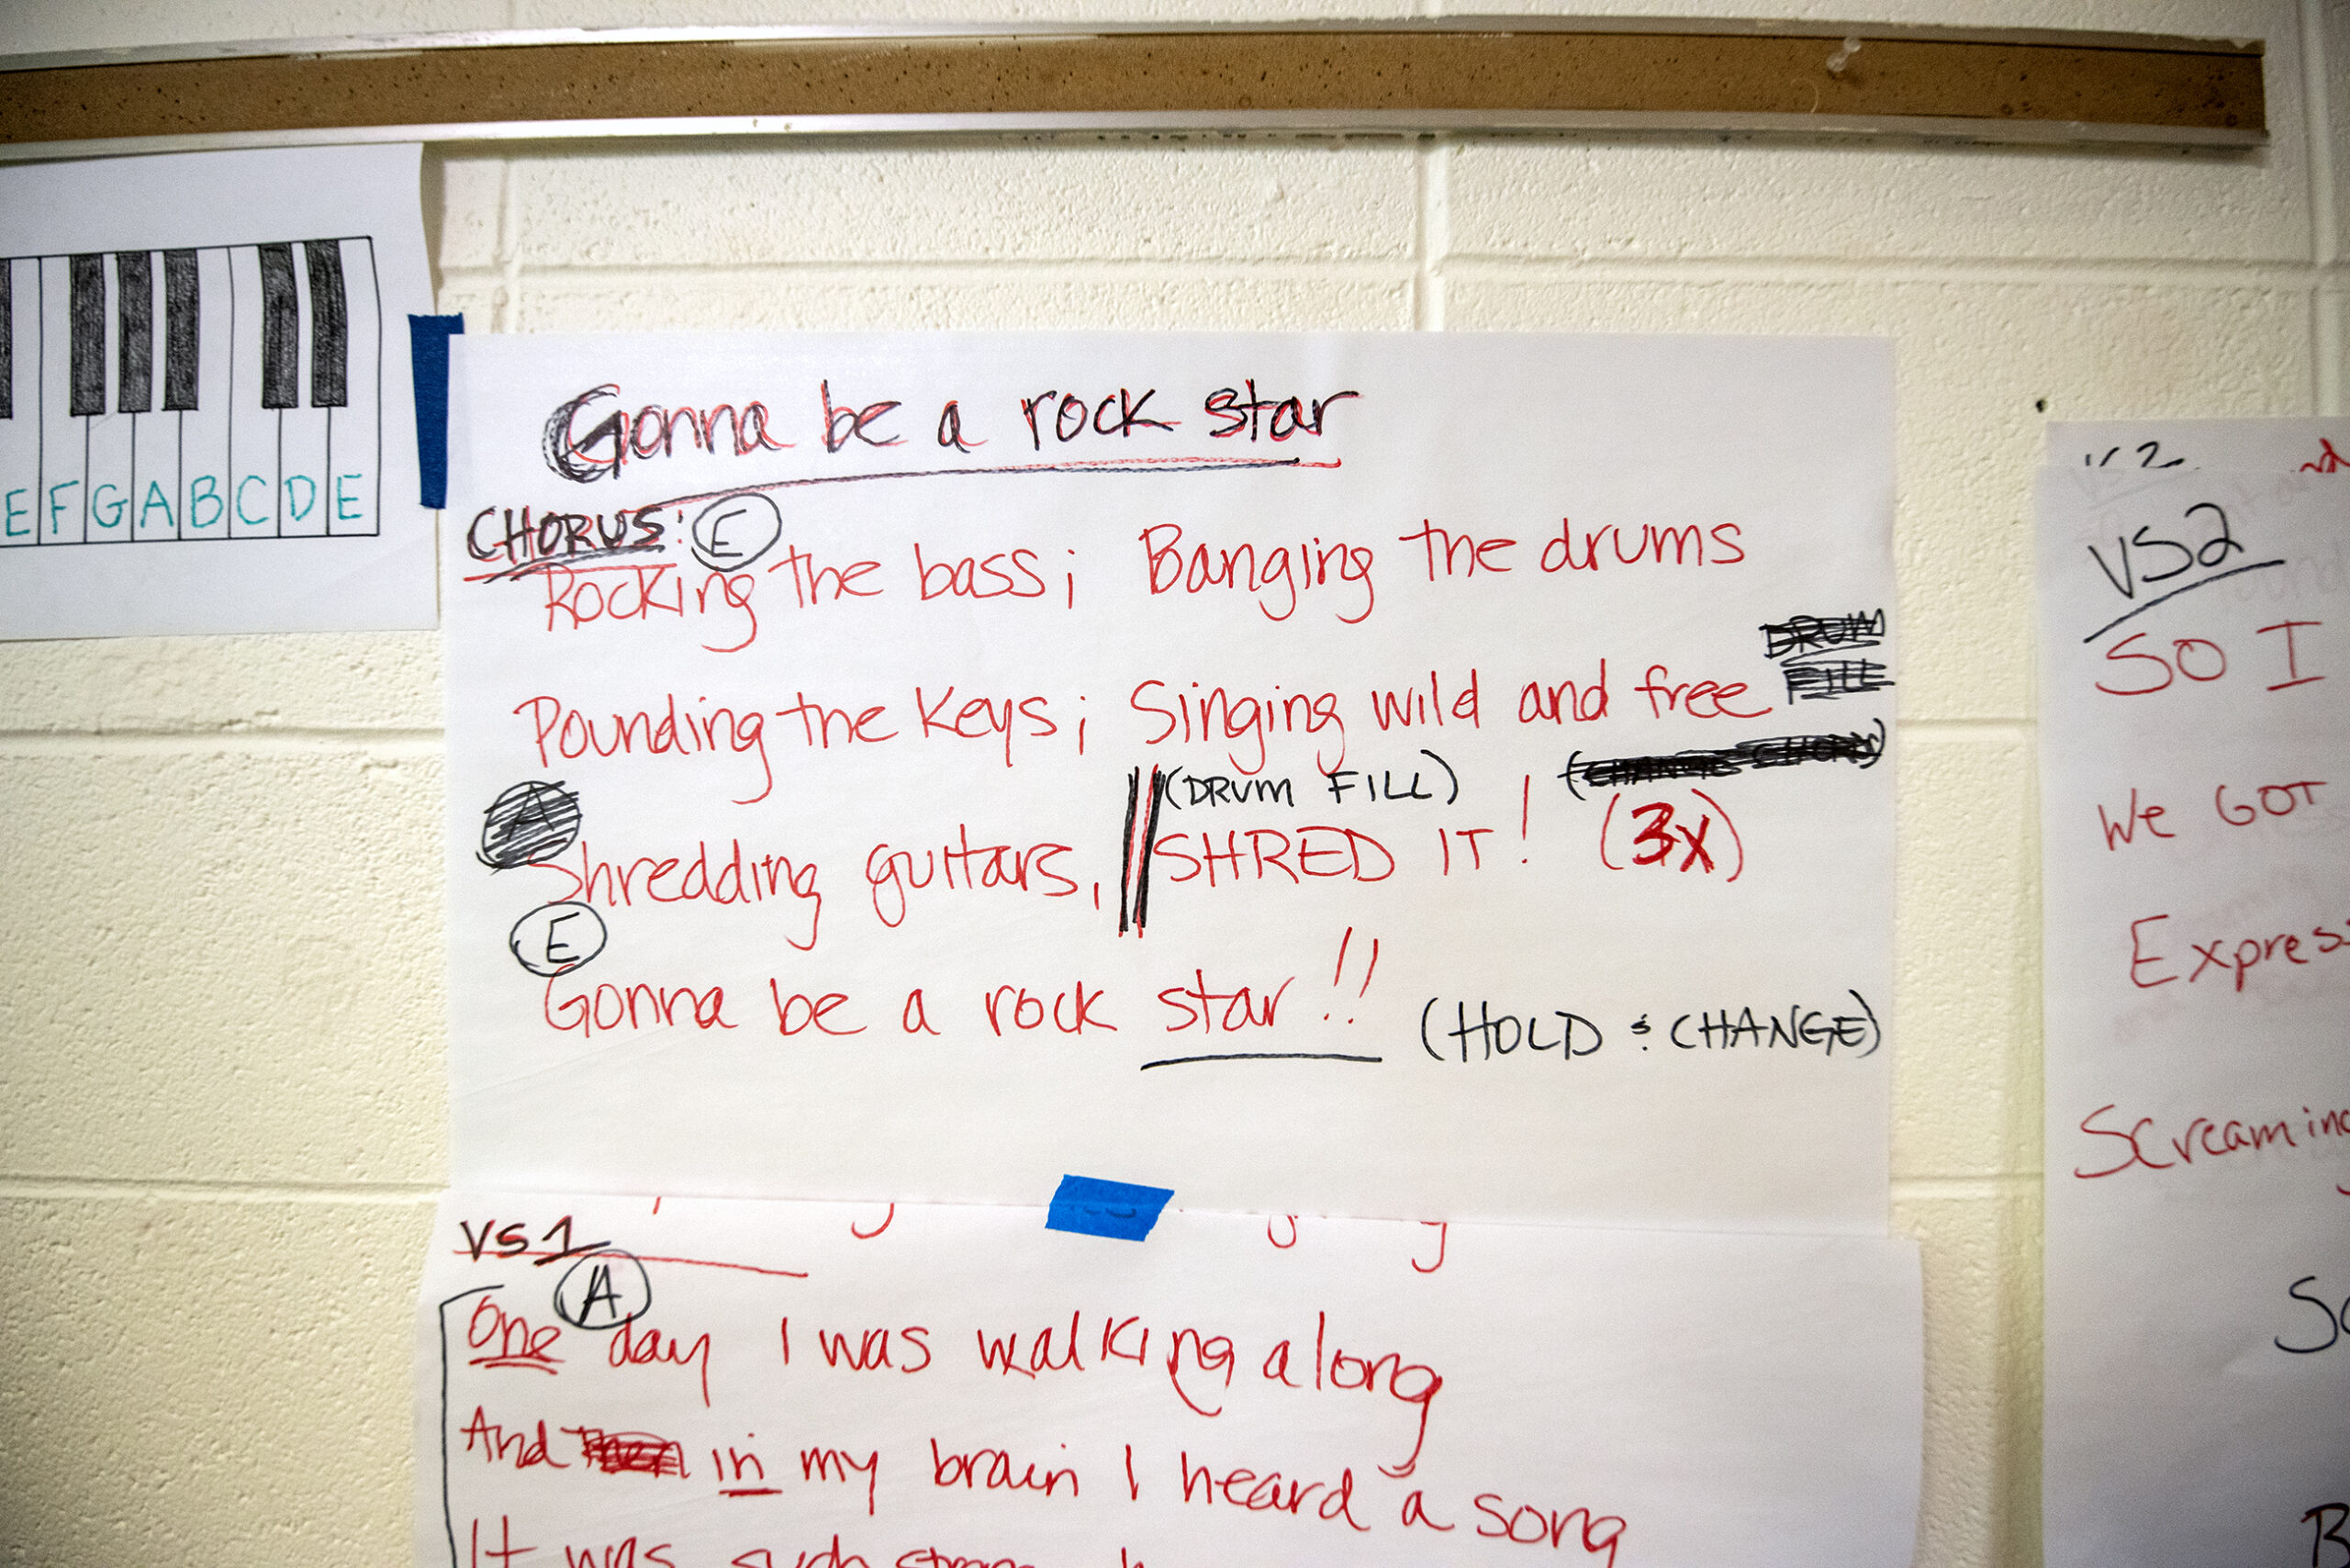 E F G A B C D E
Gonna be a rock star
CHORUS: E
Rocking the bass; Banging the drums
DRUM
FILL
Pounding the Keys; Singing wild and free
A (DRUM FILL) (CHANGE CHORD)
Shredding guitars, SHRED IT! (3x)
E
Gonna be a rock star!! (HOLD & CHANGE)
VS1
A
One day I was walking along
And then in my brain I heard a song
It was such
VS2
VS2
SO I
We GOT
Express
Screaming